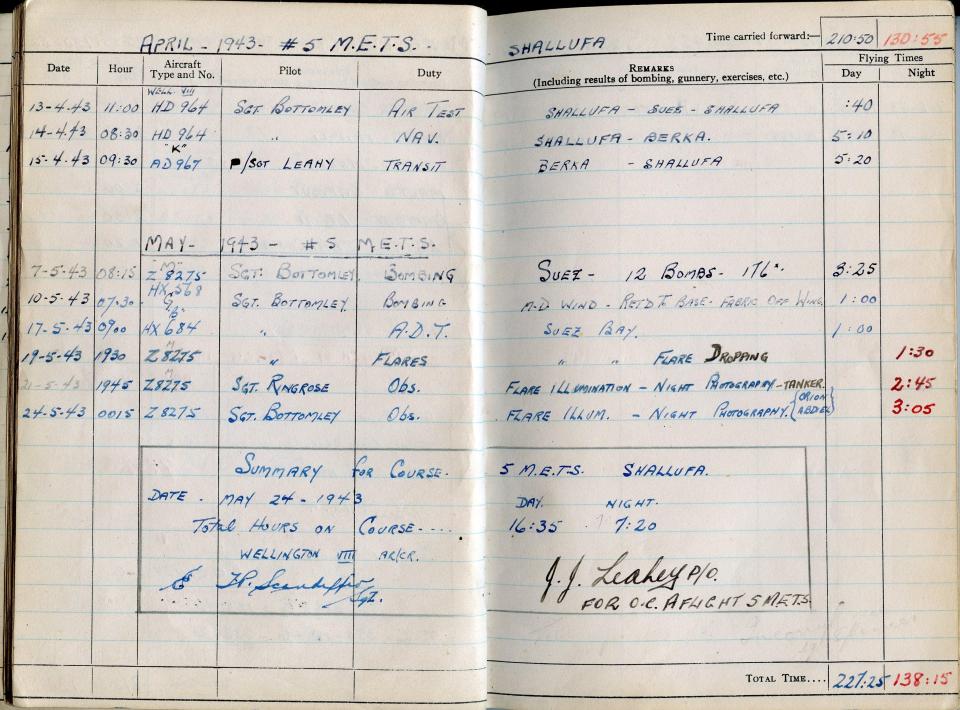 APRIL - 1943 - #5 M.E.T.S. SHALLUFA Time carried forward:— 210:50 130:55
Date Hour Aircraft Type and No. Pilot Duty REMARKS (Including results of bombing, gunnery, exercises, etc.) Flying Times Day Night
WELL. VIII
13-4-43 11:00 HD 964 SGT BOTTOMLEY AIR TEST SHALLUFA - SUES - SHALLUFA :40
14-4-43 08:30 HD 964 " NAV. SHALLUFA - BERKA. 5:10
"K"
15-4-43 09:30 AD 967 P/SGT LEAHY TRANSIT BERKA - SHALLUFA 5:20
MAY - 1943 - #5 M.E.T.S.
7-5-43 08:15 Z 8275 SGT. BOTTOMLEY BOMBING SUEZ - 12 BOMBS - 176". 3:25
10-5-43 07:30 HX 568 SGT. BOTTOMLEY BOMBING A-D WIND - RET'D TO BASE - FABRIC OFF WING 1:00
17-5-43 0900 HX 684 " A.D.T. SUEZ BAY. 1:00
19-5-43 1930 Z 8275 " FLARES " " FLARE DROPPING 1:30
21-5-43 1945 Z8275 SGT. RINGROSE Obs. FLARE ILLUMINATION - NIGHT PHOTOGRAPHY - TANKER. 2:45
24-5-43 0015 Z 8275 SGT. BOTTOMLEY Obs. FLARE ILLUM. - NIGHT PHOTOGRAPHY. {ORION ABDEL} 3:05
SUMMARY FOR COURSE. 5 M.E.T.S. SHALLUFA.
DATE. MAY 24 - 1943 DAY. NIGHT.
TOTAL HOURS ON COURSE.... 16:35 7:20
WELLINGTON VIII AR/CR.
Sgt. J.J. Leahey P/O.
FOR O.C. A FLIGHT 5 METS.
TOTAL TIME.... 227:25 138:15